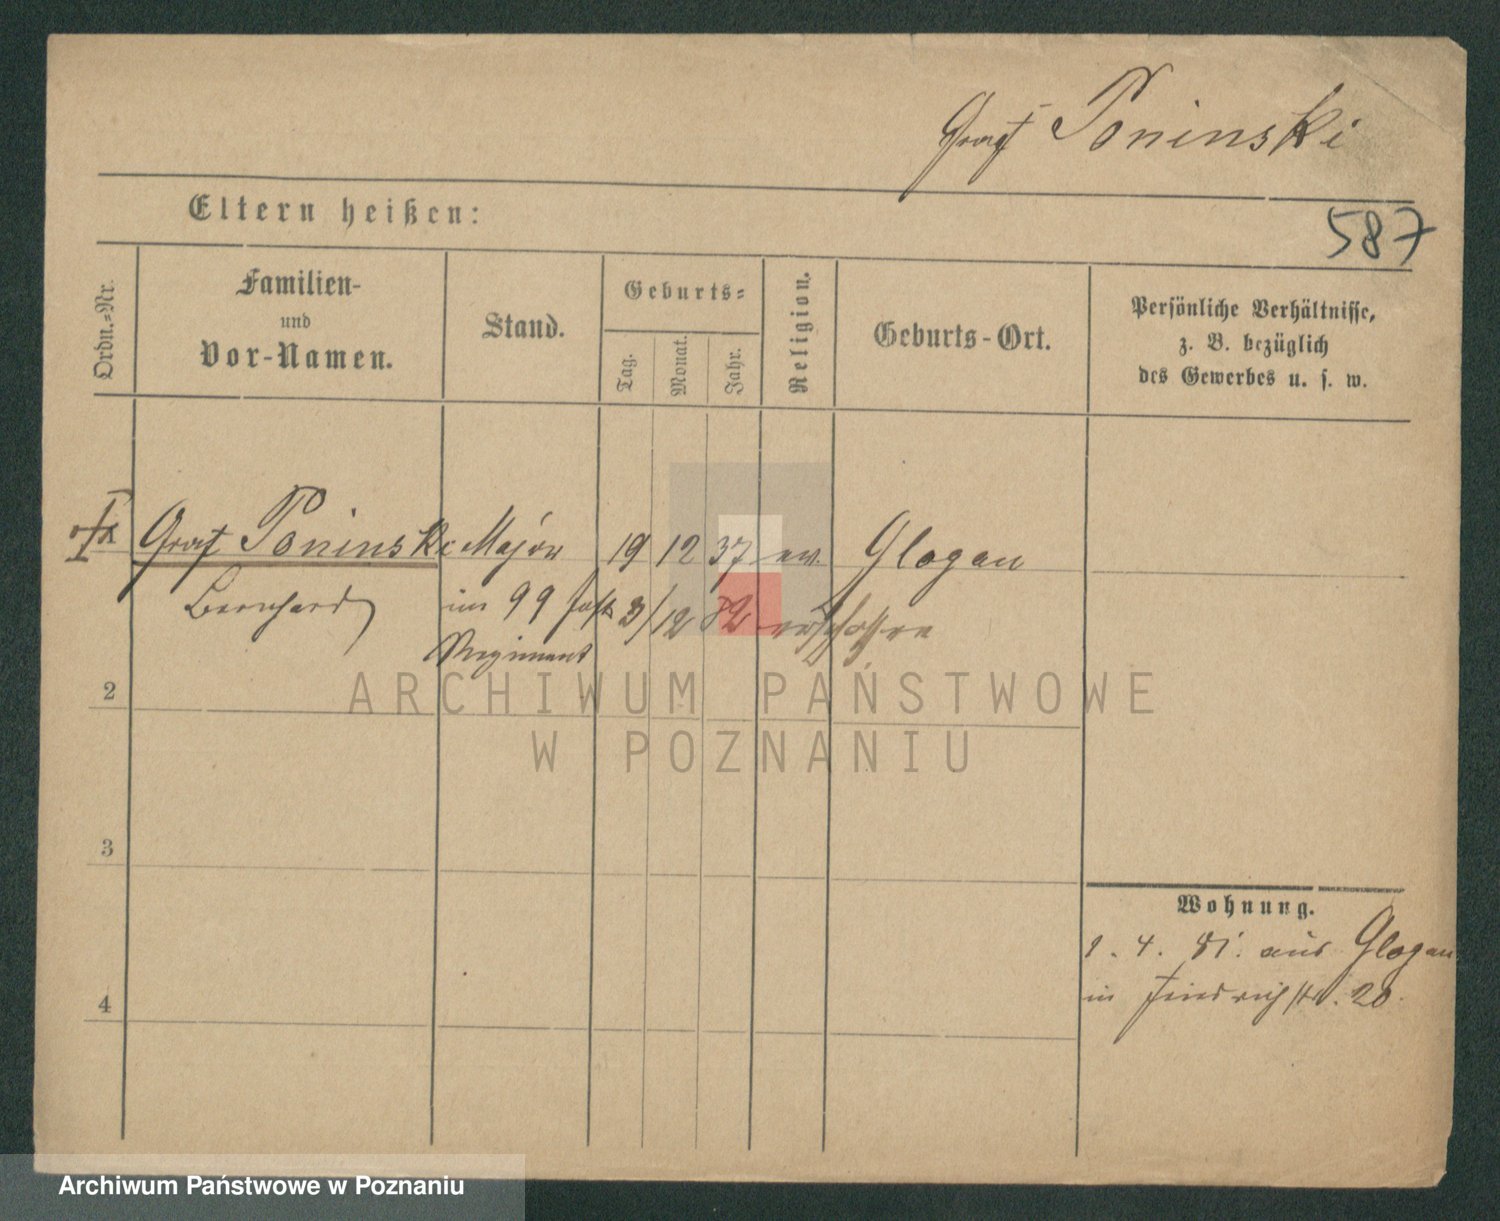 Graf Poninski
Eltern heißen:
587
Ordn.-Nr.
Familien-
und
Vor-Namen.
Stand.
Geburts-
Tag.
Monat.
Jahr.
Religion.
Geburts-Ort.
Persönliche Verhältnisse,
z. B. bezüglich
des Gewerbes u. s. w.
Graf Poninski Major 19 12 37 ev. Glogau
Bernhard im 99 3/12 82
Regiment
2
ARCHIWUM PAŃSTWOWE
W POZNANIU
3
Wohnung.
1. 4. 81. aus Glogau
in Friedrichstr. 20.
4
Archiwum Państwowe w Poznaniu